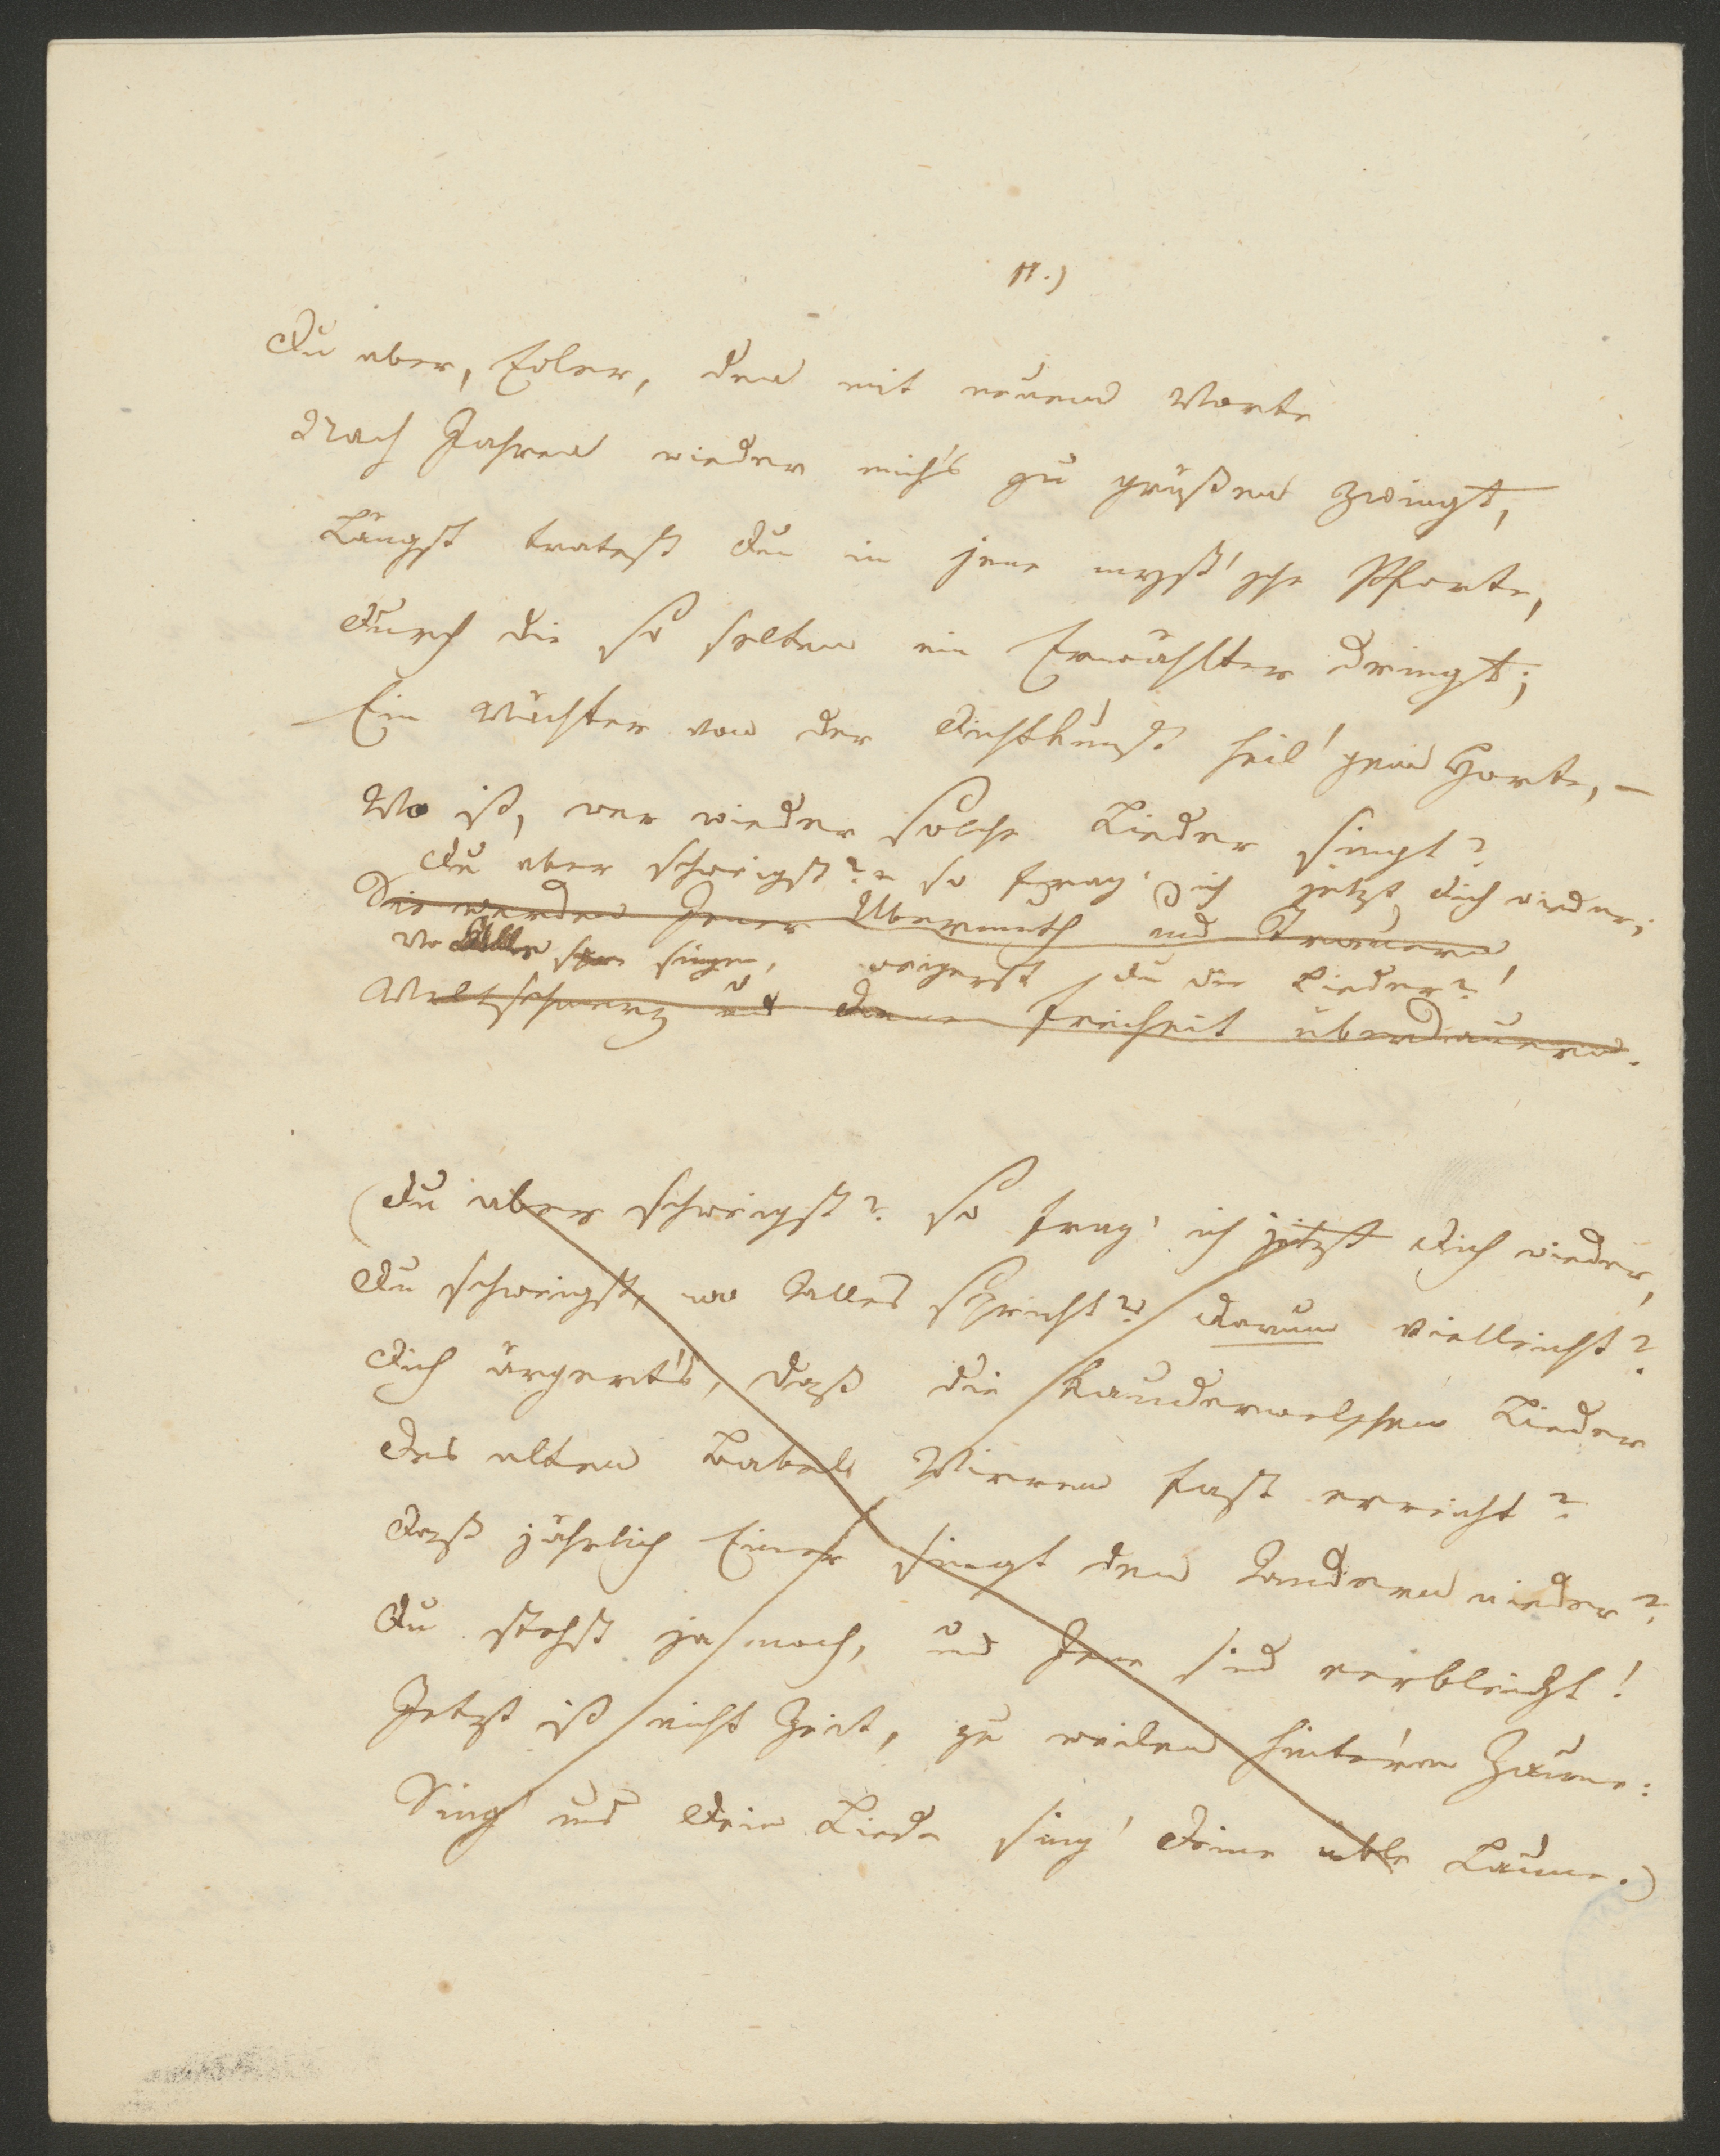 II.)
Du aber, Edler, den mit neuem Worte
Nach Jahren wieder mich's zu grüßen zwingt,
Längst tratest Du in jene myst'sche Pforte,
Durch die so selten ein Erwählter dringt;
Ein Wächter von der Dichtkunst heil'gem Horte, –
Wo ist, wer wieder solche Lieder singt?
Du aber schweigst? – so frag' ich jetzt Dich wieder;
Sie werden Jener Übermuth und Trauern
Wo Alle singen, weigerst Du die Lieder?!
Weltschmerz und Freiheit überdauern.
(Du aber schweigst? So frag' ich jetzt Dich wieder,
Du schweigst, wo Alles spricht? Darum vielleicht?
Dich ärgert's, daß die kauderwelschen Lieder
Des alten Babels Wirren fast erreicht?
Daß jährlich Einer singt den Anderen nieder?
Du stehst ja noch, und Jene sind verbleicht!
Jetzt ist nicht Zeit, zu weilen hinter'm Zaune:
Sing' uns Dein Lied, sing' Deine üble Laune.)